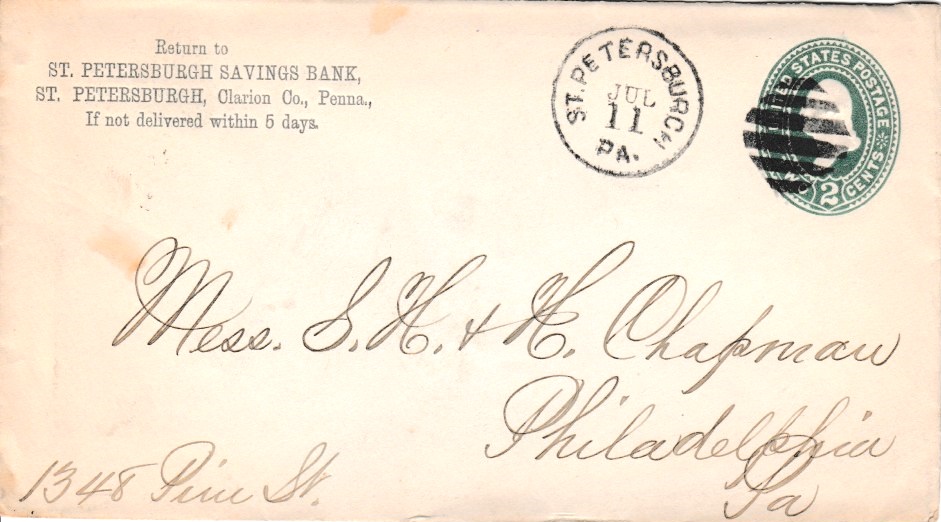 Return to
ST. PETERSBURGH SAVINGS BANK,
ST. PETERSBURGH, Clarion Co., Penna.,
If not delivered within 5 days.
ST. PETERSBURGH
JUL
11
PA.
STATES POSTAGE
2 CENTS
Mess. S. H. & H. Chapman
Philadelphia
Pa
1348 Pine St.